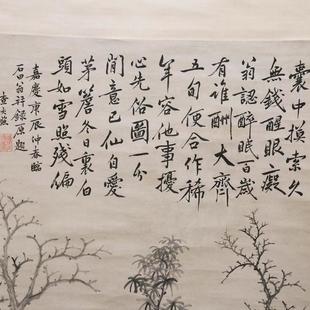 囊中摸索久
無錢醒眼癡
翁認醉眠百歲
有誰酬大齊
五旬便合作稀
年容他事擾
心先俗圖一分
閒意已仙自愛
茅簷冬日裏白
頭如雪照殘編
嘉慶庚辰仲春臨
石田翁并錄原題
查奕照